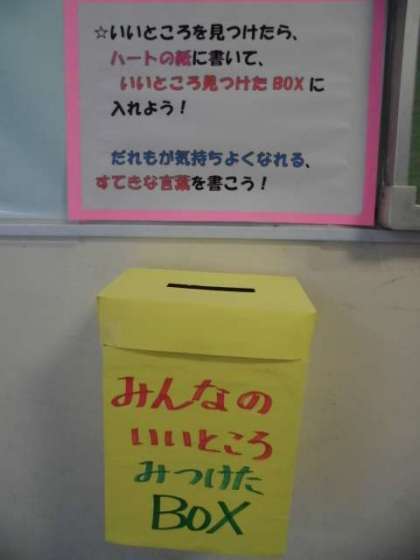 ☆いいところを見つけたら、
ハートの紙に書いて、
いいところ見つけたBOXに
入れよう！
だれもが気持ちよくなれる、
すてきな言葉を書こう！
みんなの
いいところ
みつけた
BOX